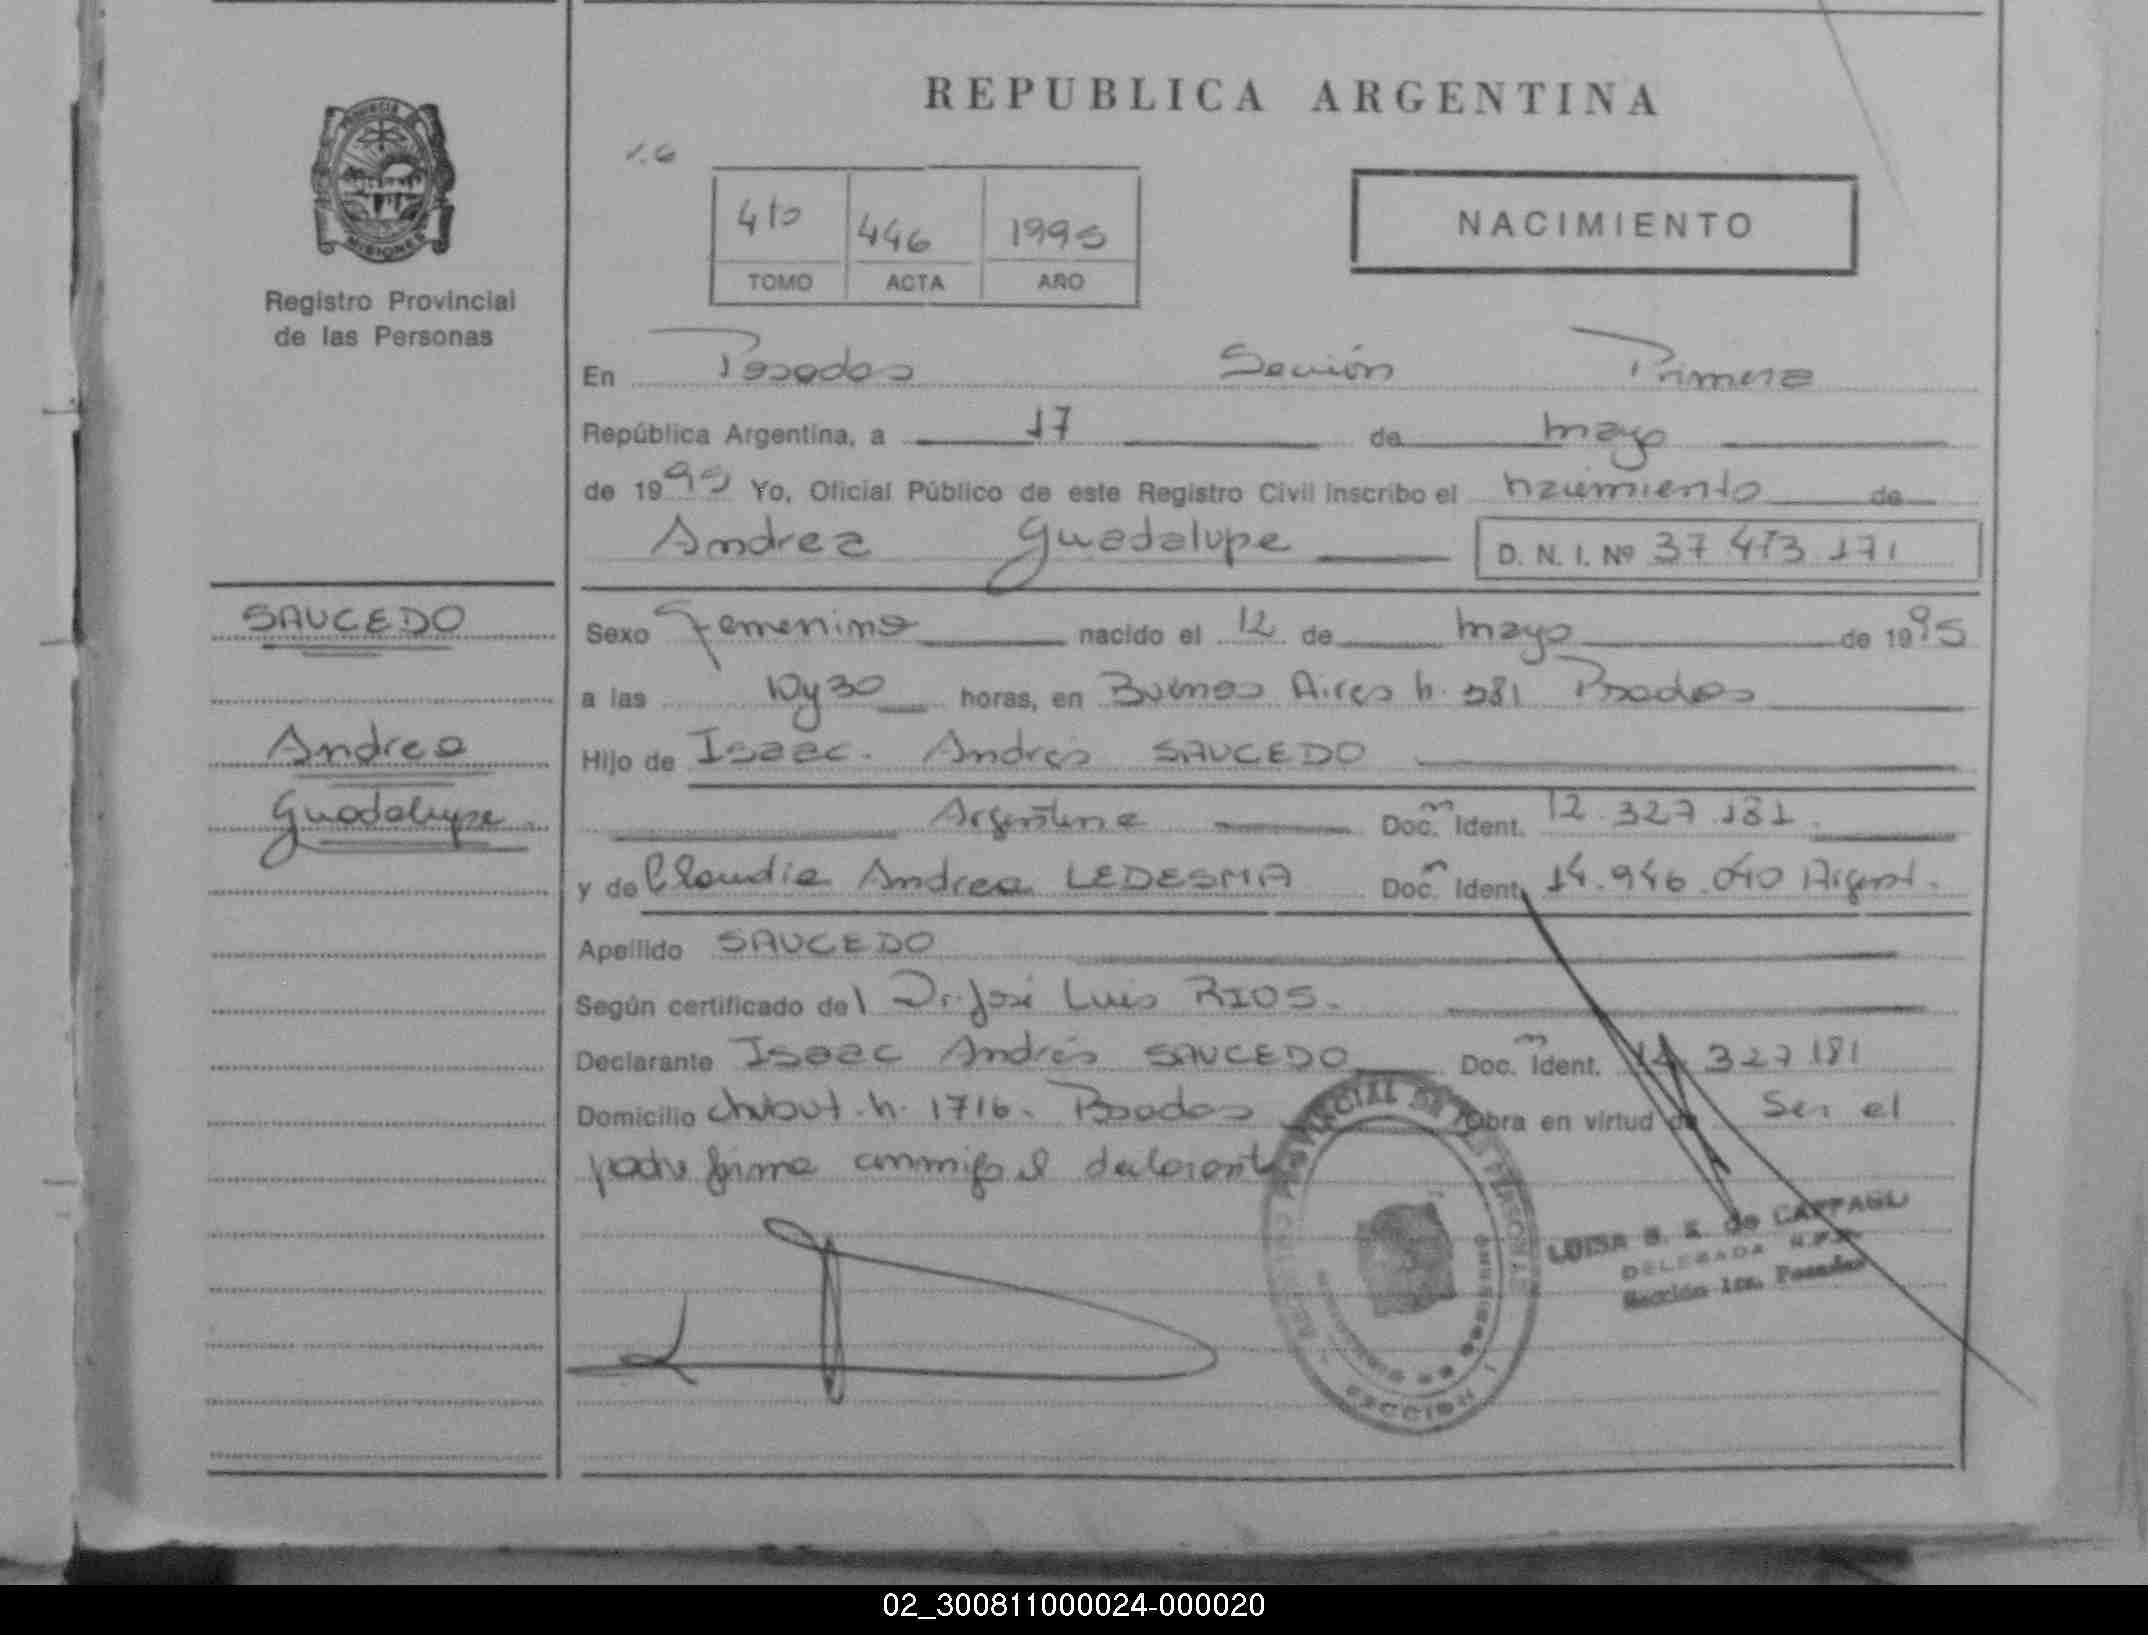 REPUBLICA ARGENTINA
PROVINCIA DE
MISIONES
Registro Provincial
de las Personas
4to 446 1995
TOMO ACTA AÑO
NACIMIENTO
En Posadas Sección Primera
República Argentina, a 17 de mayo
de 1995 Yo, Oficial Público de este Registro Civil inscribo el nacimiento de
Andrea Guadalupe D. N. I. Nº 37 473 171
SAUCEDO
Andrea
Guadalupe.
Sexo Femenino nacido el 12 de mayo de 1995
a las 10y30 horas, en Buenos Aires n. 581 Posadas
Hijo de Isaac. Andrés SAUCEDO
Argentina Doc. Ident. 12.327.181.
y de Claudia Andrea LEDESMA Doc. Ident. 14.946.040 Argent.
Apellido SAUCEDO
Según certificado del Dr. José Luis RIOS.
Declarante Isaac Andrés SAUCEDO Doc. Ident. 12 327 181
Domicilio chubut. n. 1716. Posadas Obra en virtud de Ser el
padre firma conmigo el declarante
LUISA de
DELEGADA
Sección 1ra. Posadas
SECCION
02_300811000024-000020